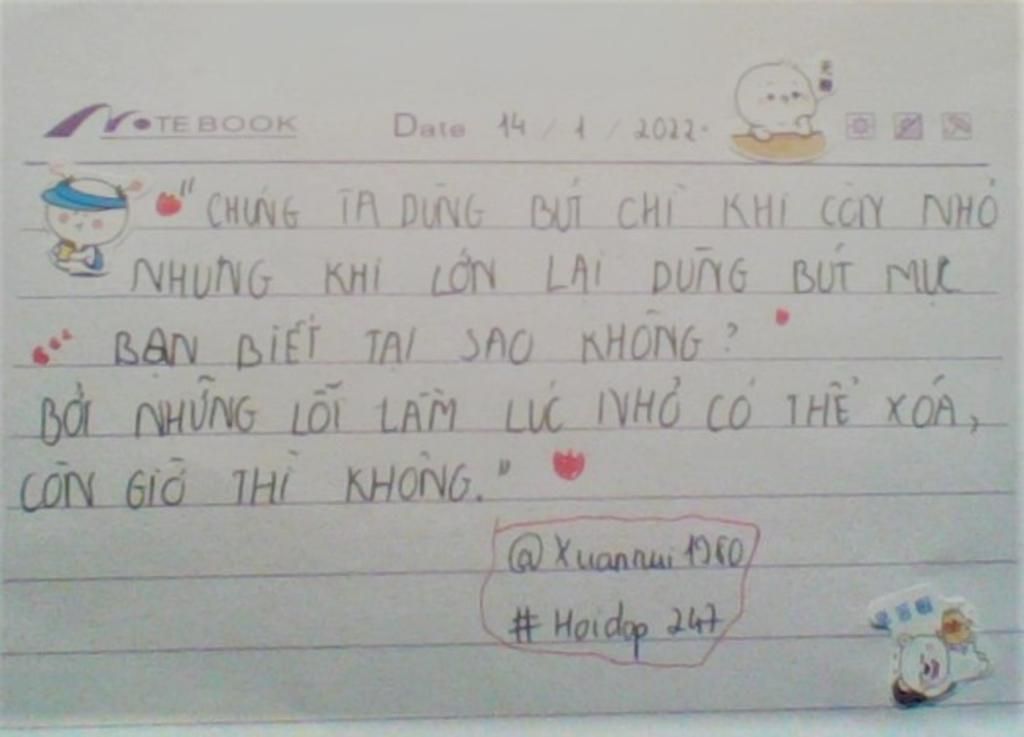 NOTEBOOK Date 14 / 1 / 2022.
"CHÚNG TA DÙNG BÚT CHÌ KHI CÒN NHỎ
NHƯNG KHI LỚN LẠI DÙNG BÚT MỰC
... BẠN BIẾT TẠI SAO KHÔNG?
BỞI NHỮNG LỖI LẦM LÚC NHỎ CÓ THỂ XÓA,
CÒN GIỜ THÌ KHÔNG."
@Xuanmui1960
# Hoidap 247